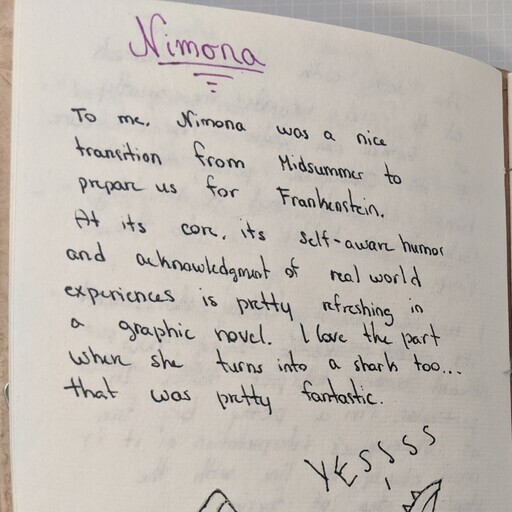 Nimona
To me, Nimona was a nice
transition from Midsummer to
prepare us for Frankenstein.
At its core, its self-aware humor
and acknowledgment of real world
experiences is pretty refreshing in
a graphic novel. I love the part
where she turns into a shark too...
that was pretty fantastic.
YESSSS